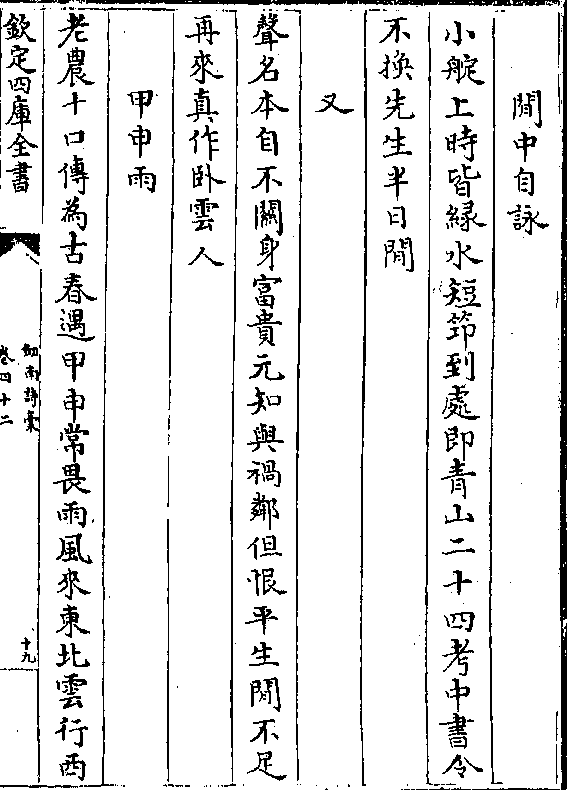 閒中自詠
小艇上時皆緑水短笻到處即青山二十四考中書令
不換先生半日閒
又
聲名本自不關身富貴元知與禍鄰但恨平生閒不足
再來真作臥雲人
甲申雨
老農十口傳為古春遇甲申常畏雨風來東北雲行西
欽定四庫全書
劍南詩稾
卷四十二
十九